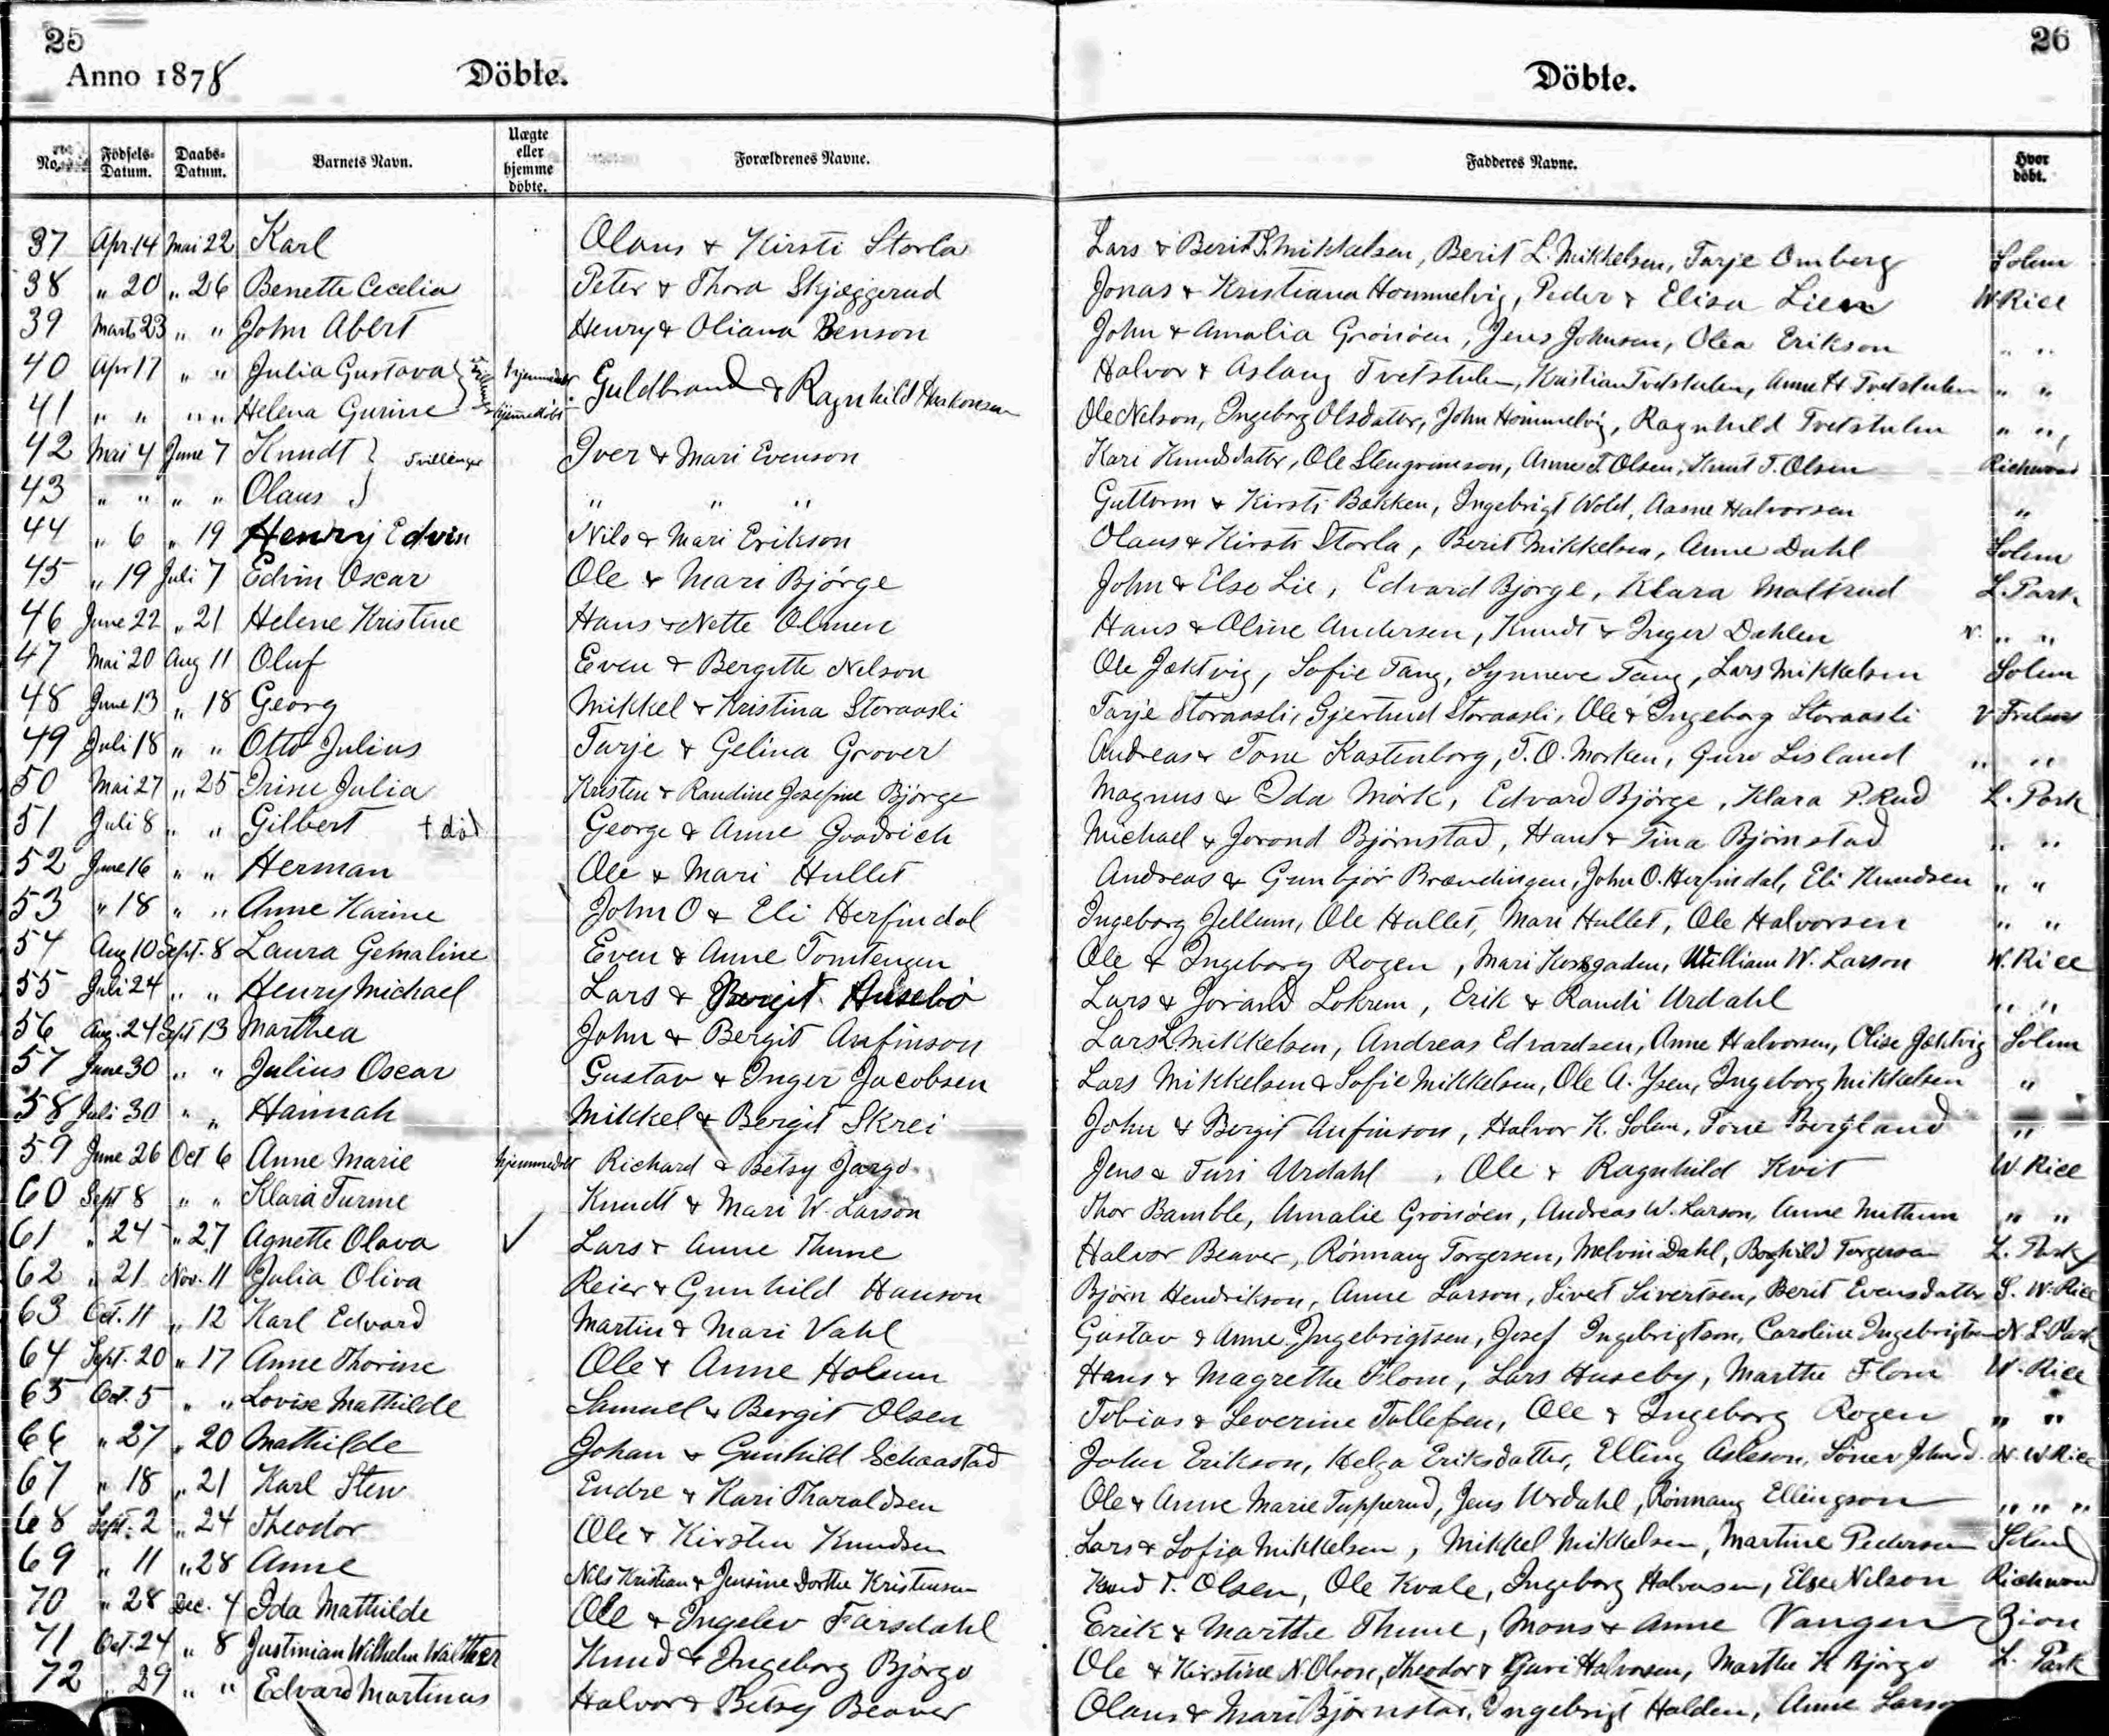 25
Anno 1878 Döbte.
Döbte. 26
No. Födsels-Datum. Daabs-Datum. Barnets Navn. Uægte eller hjemme döbte. Forældrenes Navne. Fadderes Navne. Hvor döbt.
37 Apr. 14 Mai 22 Karl Olaus & Kirsti Storla Lars & Berit S. Mikkelsen, Berit L. Mikkelsen, Tarje Omberg Solem
38 " 20 " 26 Benette Cecelia Peter & Thora Skjæggerud Jonas & Kristiana Hommelvig, Peder & Elisa Lien W. Rice
39 Marts 23 " " John Abert Henry & Oliana Benson John & Amalia Gronöen, Jens Johnsen, Olea Erikson " "
40 Apr 17 " " Julia Gustava } Tvillinger hjemmedöbt Guldbrand & Ragnhild Haakonsen Halvor & Aslaug Tvetstulen, Kristian Tvetstulen, Anne H Tvetstulen " "
41 " " " " Helena Gurine } hjemmedöbt Ole Nelson, Ingeborg Olsdatter, John Hommelvig, Ragnhild Tvetstulen " "
42 Mai 4 June 7 Knudt } Tvillinger Iver & Mari Evenson Kari Knudsdatter, Ole Stengrimson, Anne T. Olsen, Knut T. Olsen Richwood
43 " " " " Olaus } " " " Guttorm & Kirsti Bakken, Ingebrigt Wold, Aasne Halvorsen "
44 " 6 " 19 Henry Edvin Nils & Mari Erikson Olaus & Kirsti Storla, Berit Mikkelsen, Anne Dahl Solem
45 " 19 Juli 7 Edvin Oscar Ole & Mari Bjørge John & Else Lie, Edvard Bjørge, Klara Maltrud L. Park
46 June 22 " 21 Helene Kristine Hans & Nette Olmen Hans & Oline Andersen, Knudt & Inger Dahlen N. " "
47 Mai 20 Aug 11 Oluf Even & Bergitte Nelson Ole Jæktvig, Sofie Tang, Synneve Tang, Lars Mikkelsen Solem
48 June 13 " 18 Georg Mikkel & Kristina Storaasli Tarje Storaasli, Gjertrud Storaasli, Ole & Ingeborg Storaasli
49 Juli 18 " " Otto Julius Tarje & Gelina Grover Andreas & Tone Kastenborg, T. O. Morken, Guro Lisland " "
50 Mai 27 " 25 Trine Julia Kristen & Randine Josefine Bjørge Magnus & Ida Mørk, Edvard Bjørge, Klara P. Rud L. Park
51 Juli 8 " " Gilbert † död George & Anne Goodrich Michael & Jorond Bjørnstad, Hans & Tina Bjørnstad " "
52 June 16 " " Herman Ole & Mari Hullet Andreas & Gunbjør Brændingen, John O. Herfindal, Eli Knudsen " "
53 " 18 " " Anne Karine John O & Eli Herfindal Ingeborg Jellum, Ole Hullet, Mari Hullet, Ole Halvorsen " "
54 Aug 10 Sept. 8 Laura Gemaline Even & Anne Tomtengen Ole & Ingeborg Rogen, Mari Korsgaden, William W. Larson W. Rice
55 Juli 24 " " Henry Michael Lars & Bergit Husebö Lars & Jørand Lokrem, Erik & Randi Urdahl " "
56 Aug. 24 Sept 13 Marthea John & Bergit Anfinson Lars L. Mikkelsen, Andreas Edvardsen, Anne Halvorsen, Olise Jæktvig Solem
57 June 30 " " Julius Oscar Gustav & Inger Jacobsen Lars Mikkelsen & Sofie Mikkelsen, Ole A. Ysen, Ingeborg Mikkelsen "
58 Juli 30 " " Hannah Mikkel & Bergit Skrei John & Bergit Anfinson, Halvor K. Solem, Tone Bergland "
59 June 26 Oct 6 Anne Marie hjemmedöbt Richard & Betsy Jargo Jens & Turi Urdahl, Ole & Ragnhild Kvit W Rice
60 Sept 8 " " Klara Turine Knudt & Mari W. Larson Thor Bamble, Amalie Gronöen, Andreas W. Larson, Anne Mithun " "
61 " 24 " 27 Agnette Olava ✓ Lars & Anne Thune Halvor Beaver, Rønnaug Torgersen, Melvin Dahl, Boghild Torgerson L. Park
62 " 21 Nov. 11 Julia Oliva Reier & Gunhild Hanson Bjørn Hendrikson, Anne Larson, Sivert Sivertsen, Berit Evensdatter S. W. Rice
63 Oct. 11 " 12 Karl Edvard Martin & Mari Vahl Gustav & Anne Ingebrigtsen, Josef Ingebrigtson, Caroline Ingebrigtson N L. Park
64 Sept. 20 " 17 Anne Thorine Ole & Anne Holum Hans & Magrethe Flom, Lars Huseby, Marthe Flom W. Rice
65 Oct. 5 " " Lovise Mathilde Samuel & Bergit Olsen Tobias & Severine Tollefsen, Ole & Ingeborg Rogen " "
66 " 27 " 20 Mathilde Johan & Gunhild Schaastad John Erikson, Helga Eriksdatter, Elling Asleson, N. W Rice
67 " 18 " 21 Karl Sten Endre & Kari Tharaldsen Ole & Anne Marie Tupperud, Jens Urdahl, Rønnaug Ellingson " " "
68 Sept. 2 " 24 Theodor Ole & Kirsten Knudsen Lars & Sofia Mikkelsen, Mikkel Mikkelsen, Martine Pedersen Solem
69 " 11 " 28 Anne Nils Kristian & Jensine Dorthe Kristensen Knud T. Olsen, Ole Kvale, Ingeborg Halvorsen, Else Nilson Richwood
70 " 28 Dec. 4 Ida Mathilde Ole & Ingelev Farsdahl Erik & Marthe Thune, Mons & Anne Vangen Zion
71 Oct. 24 " 8 Justinian Wilhelm Walther Knud & Ingeborg Bjørgo Ole & Kirstine N. Olson, Theodor & Guri Halvorsen, Marthe K Bjørgo L. Park
72 " 29 " " Edvard Martinus Halvor & Betsy Beaver Olaus & Mari Bjørnstad, Ingebrigt Halden, Anne